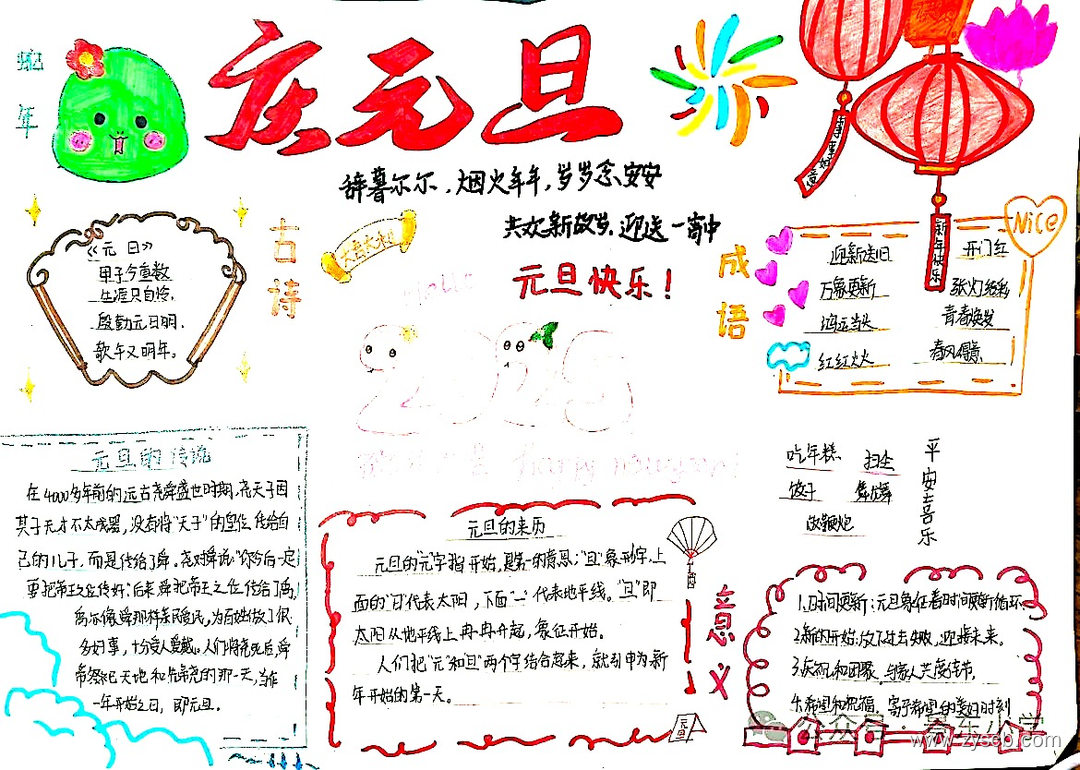 蛇年
庆元旦
辞暮尔尔,烟火年年,岁岁念,安安
共欢新故岁,迎送一宵中
元旦快乐!
Hello
2025
古诗
《元日》
甲子今重数
生涯只自怜,
殷勤元日日,
歌午又明年。
成语
Nice
新年快乐
迎新送旧
开门红
万象更新
张灯结彩
鸿运当头
青春焕发
红红火火
春风得意
吃年糕
扫尘
饺子
放鞭炮
平安喜乐
元旦的传说
在4000多年前的远古尧舜盛世时期,尧天子因
其子无才不太成器,没有将"天子"的皇位传给自
己的儿子,而是传给了舜。尧对舜说:"你今后一定
要把帝王之位传好。"后来舜把帝王之位传给了禹,
禹亦像舜那样亲民爱民,为百姓做了很
多好事,十分受人爱戴。人们将尧死后,舜
帝祭祀天地和先帝尧的那一天,当作
一年开始之日,即元旦。
元旦的来历
元旦的"元"字指开始,是第一的意思;"旦"象形字,上
面的"日"代表太阳,下面"一"代表地平线。"旦"即
太阳从地平线上冉冉升起,象征开始。
人们把"元"和"旦"两个字结合起来,就引申为新
年开始的第一天。
元旦
意义
1.时间更新:元旦象征着时间更新循环
2.新的开始,放下过去失败,迎接未来。
3.庆祝和团聚,与家人共度佳节,
4.希望和祝福,寄予希望的美好时刻
www.zyscb.com